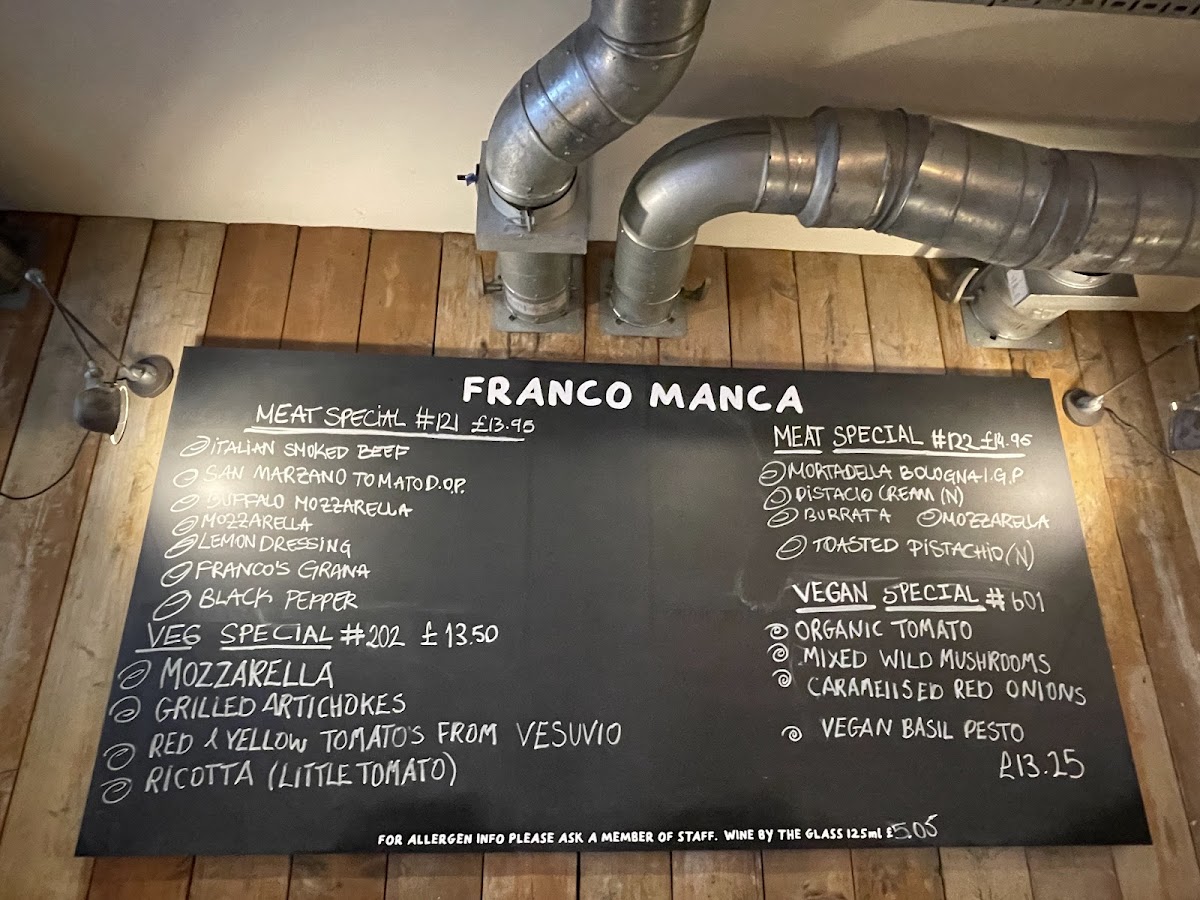 FRANCO MANCA
MEAT SPECIAL #121 £13.95
ITALIAN SMOKED BEEF
SAN MARZANO TOMATO D.O.P.
BUFFALO MOZZARELLA
MOZZARELLA
LEMON DRESSING
FRANCO'S GRANA
BLACK PEPPER
VEG SPECIAL #202 £13.50
MOZZARELLA
GRILLED ARTICHOKES
RED & YELLOW TOMATO'S FROM VESUVIO
RICOTTA (LITTLE TOMATO)
MEAT SPECIAL #122 £14.95
MORTADELLA BOLOGNA I.G.P
PISTACIO CREAM (N)
BURRATA MOZZARELLA
TOASTED PISTACHIO (N)
VEGAN SPECIAL #601
ORGANIC TOMATO
MIXED WILD MUSHROOMS
CARAMELISED RED ONIONS
VEGAN BASIL PESTO
£13.25
FOR ALLERGEN INFO PLEASE ASK A MEMBER OF STAFF. WINE BY THE GLASS 125ml £5.05